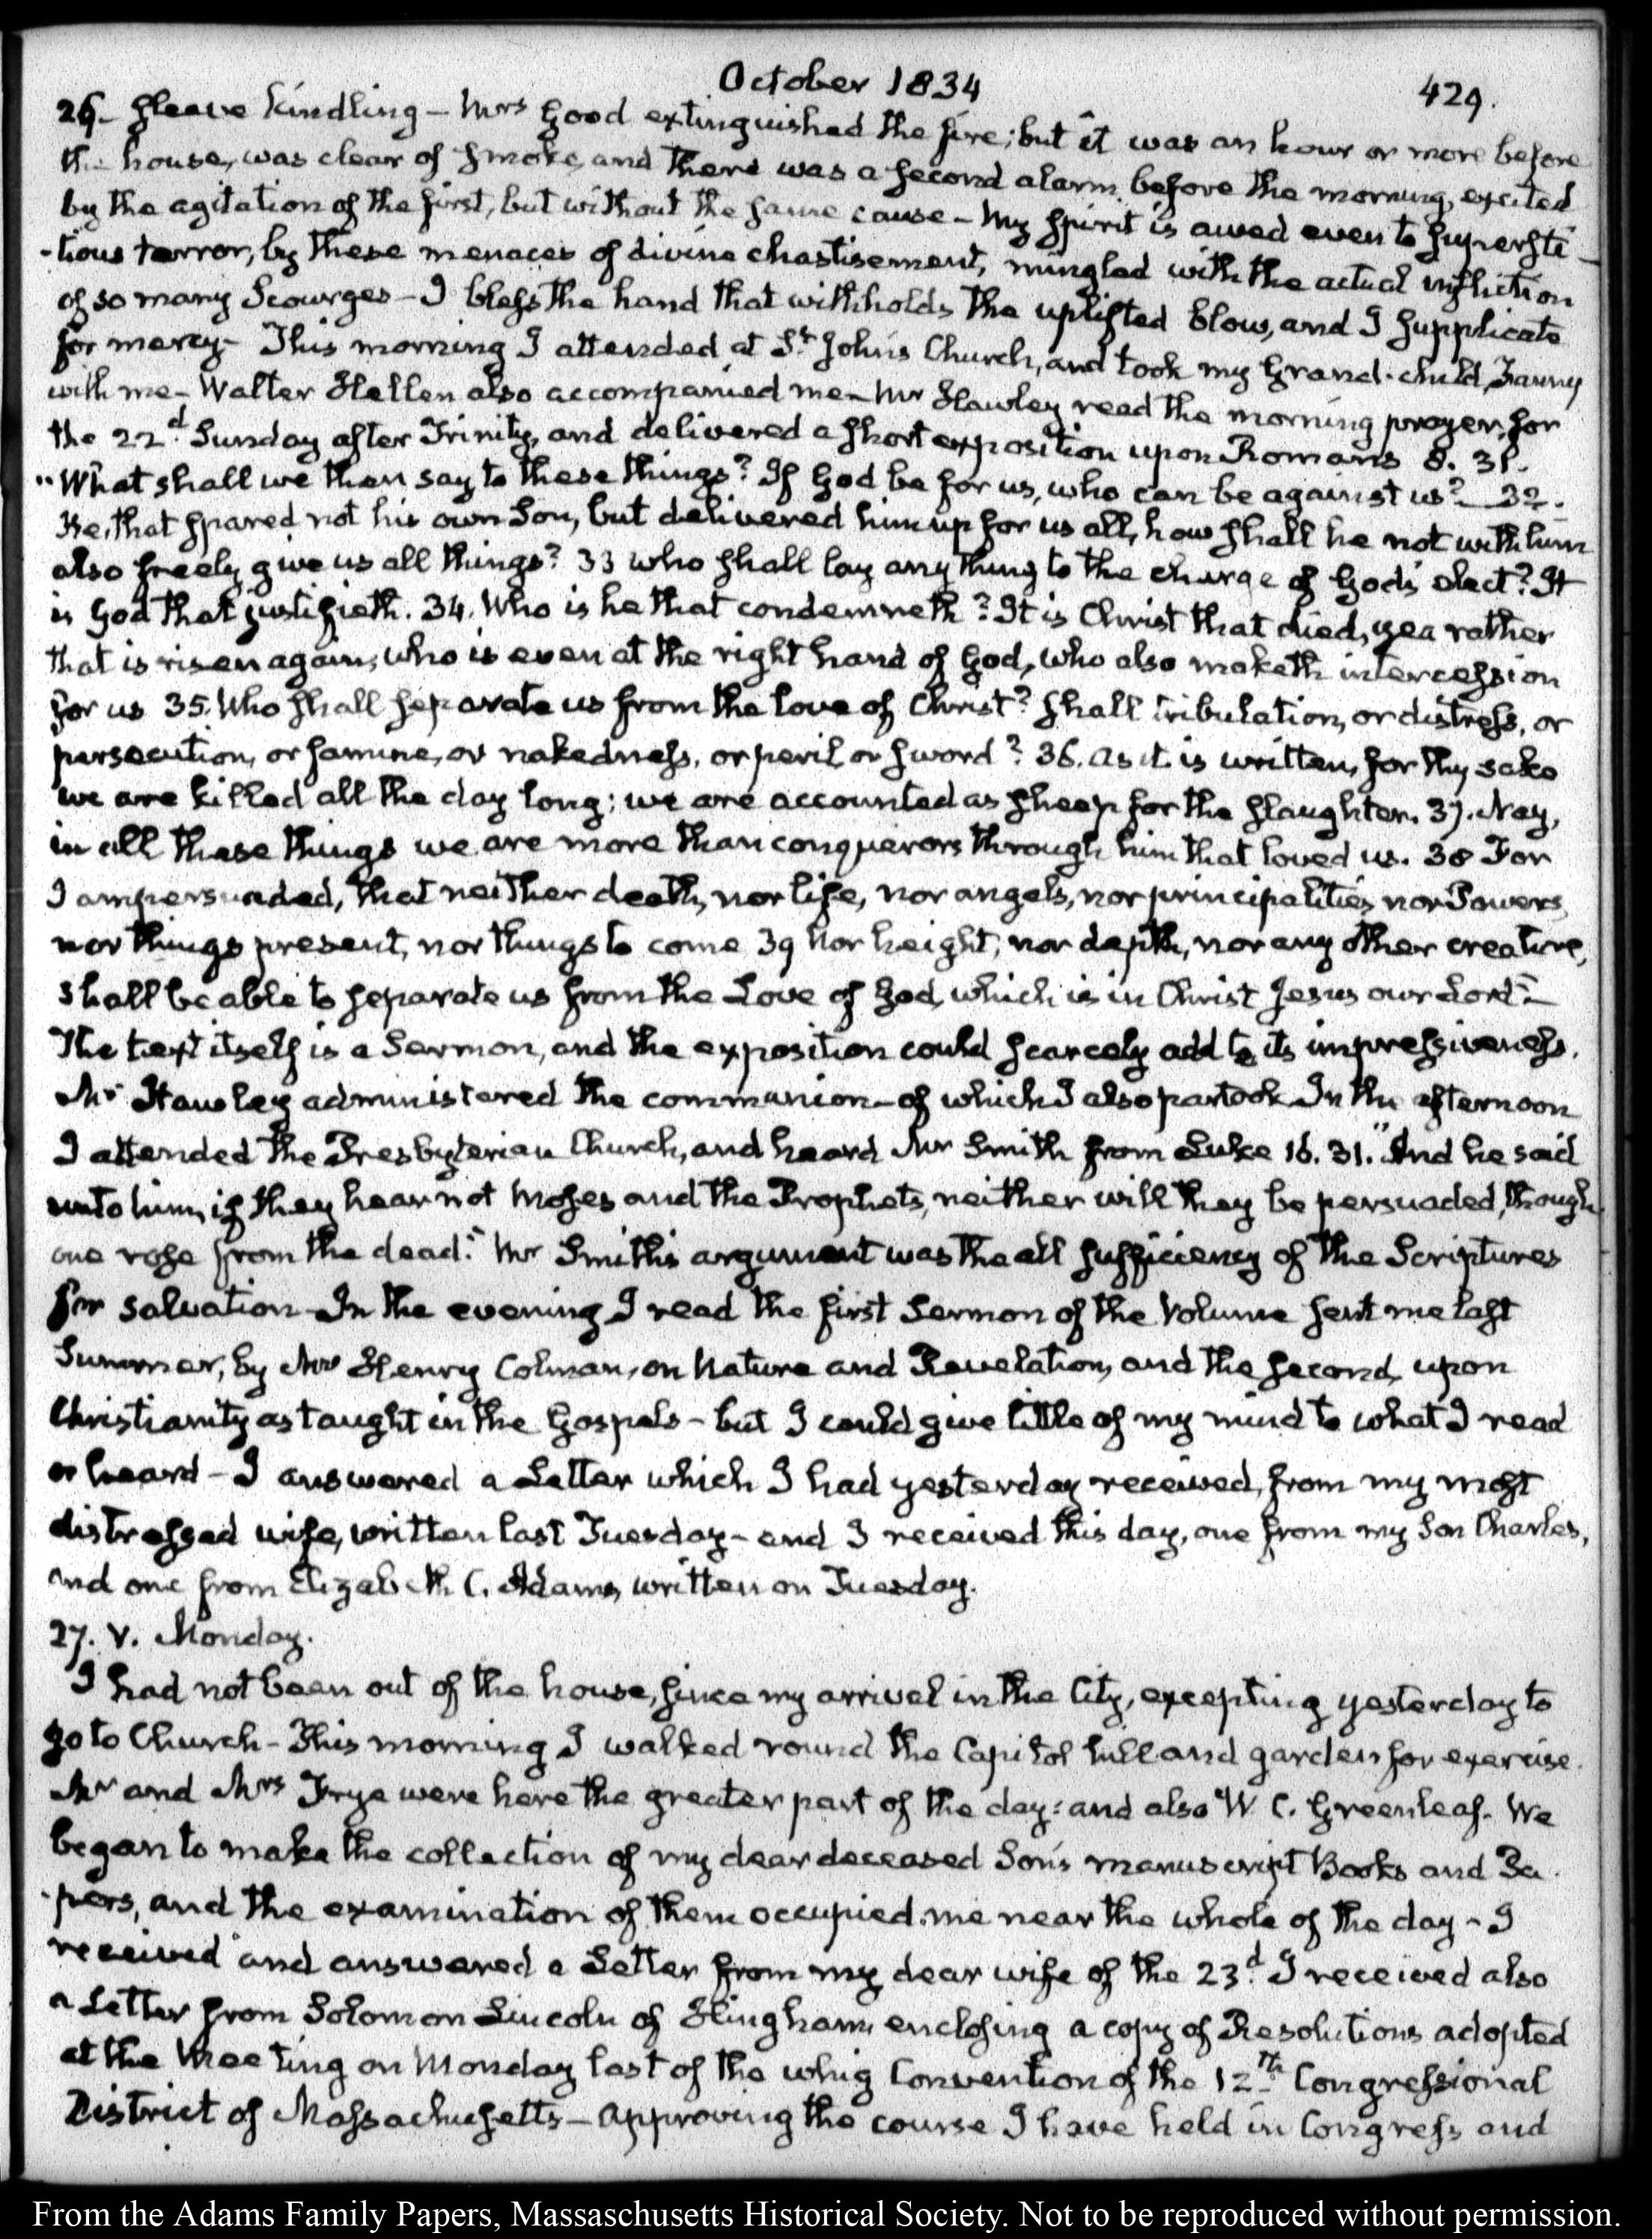 October 1834
429.
26— sleave kindling — Mrs Good extinguished the fire; but it was an hour or more before
the house, was clear of smoke, and there was a second alarm before the morning, excited
by the agitation of the first, but without the same cause — My Spirit is awed even to supersti-
-tious terror, by these menaces of divine chastisement, mingled with the actual infliction
of so many Scourges — I bless the hand that withholds the uplifted blow, and I supplicate
for mercy — This morning I attended at St. John's Church, and took my Grand-child, Fanny
with me — Walter Hellen also accompanied me — Mr Hawley read the morning prayer, for
the 22d. Sunday after Trinity, and delivered a short exposition upon Romans 8. 31.
"What shall we then say to these things? If God be for us, who can be against us? — 32.
He, that spared not his own Son, but delivered him up for us all, how shall he not with him
also freely give us all things? 33 who shall lay any thing to the charge of God's elect? It
is God that justifieth. 34. Who is he that condemneth? It is Christ that died, yea rather
that is risen again, who is even at the right hand of God, who also maketh intercession
for us 35. Who shall separate us from the love of Christ? Shall tribulation, or distress, or
persecution, or famine, or nakedness, or peril or sword? 36. As it is written, for thy sake
we are killed all the day long; we are accounted as sheep for the slaughter. 37. Nay,
in all these things we are more than conquerors through him that loved us. 38 For
I am persuaded, that neither death, nor life, nor angels, nor principalities, nor Powers,
nor things present, nor things to come 39 Nor height, nor depth, nor any other creature,
shall be able to separate us from the Love of God, which is in Christ Jesus our Lord" —
The text itself is a Sermon, and the exposition could scarcely add to its impressiveness.
Mr Hawley administered the communion — of which I also partook In the afternoon
I attended the Presbyterian Church, and heard Mr Smith from Luke 16. 31. "And he said
unto him, if they hear not Moses and the Prophets, neither will they be persuaded, though
one rose from the dead." Mr Smith's argument was the all sufficiency of the Scriptures
for salvation — In the evening I read the first Sermon of the Volume sent me last
Summer, by Mr Henry Colman, on Nature and Revelation, and the second, upon
Christianity as taught in the Gospels — but I could give little of my mind to what I read
or heard — I answered a Letter which I had yesterday received, from my most
distressed wife, written last Tuesday — and I received this day, one from my Son Charles,
and one from Elizabeth C. Adams, written on Tuesday.
27. V. Monday.
I had not been out of the house, since my arrival in the City, excepting yesterday to
go to Church — This morning I walked round the Capitol hill and garden for exercise.
Mr and Mrs Frye were here the greater part of the day: and also W. C. Greenleaf. We
began to make the collection of my dear deceased Son's manuscript Books and Pa-
-pers, and the examination of them occupied me near the whole of the day — I
received and answered a Letter from my dear wife of the 23d. I received also
a Letter from Solomon Lincoln of Hingham, enclosing a copy of Resolutions adopted
at the Meeting on Monday last of the whig Convention of the 12th. Congressional
District of Massachusetts — approving the course I have held in Congress and
From the Adams Family Papers, Massachusetts Historical Society. Not to be reproduced without permission.